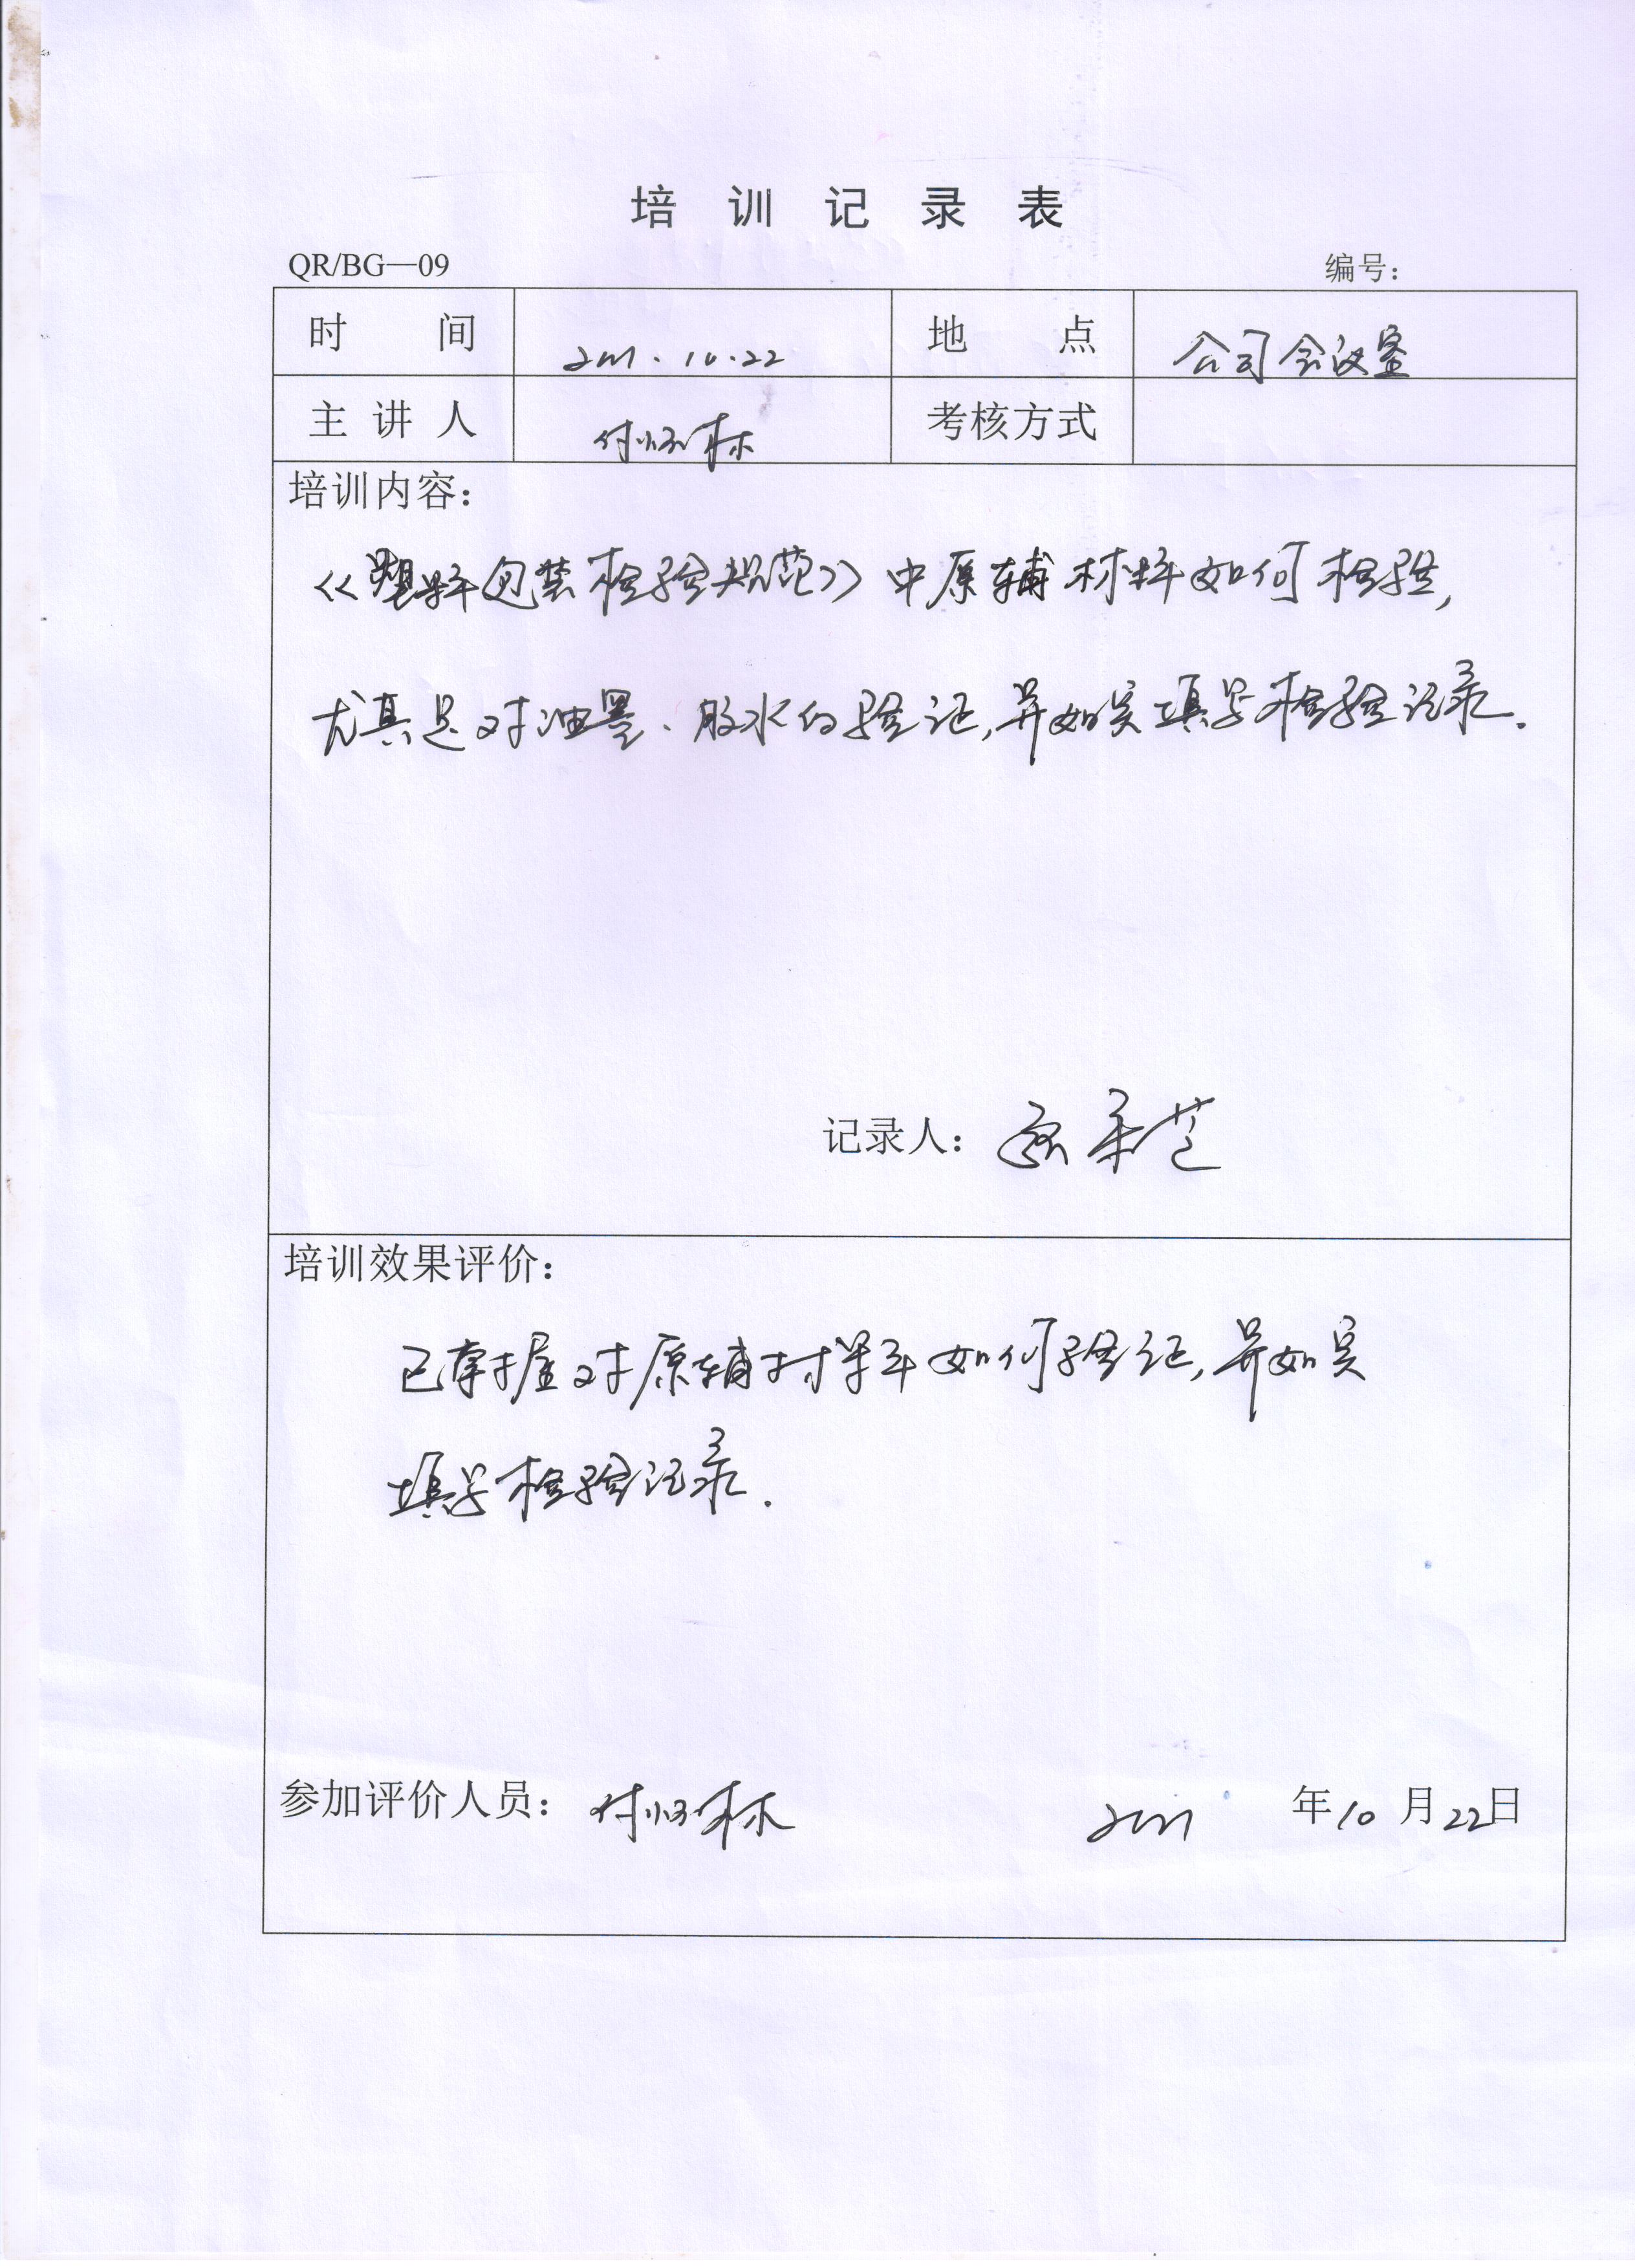 培训记录表
QR/BG—09 编号：
时间 2021.10.22 地点 公司会议室
主讲人 付怀林 考核方式
培训内容：
《塑料包装检验规范》中原辅材料如何检验，
尤其是对油墨、胶水的验证，并如实填写检验记录。
记录人：
培训效果评价：
已掌握对原辅材料如何验证，并如实
填写检验记录.
参加评价人员：付怀林 2021年10月22日